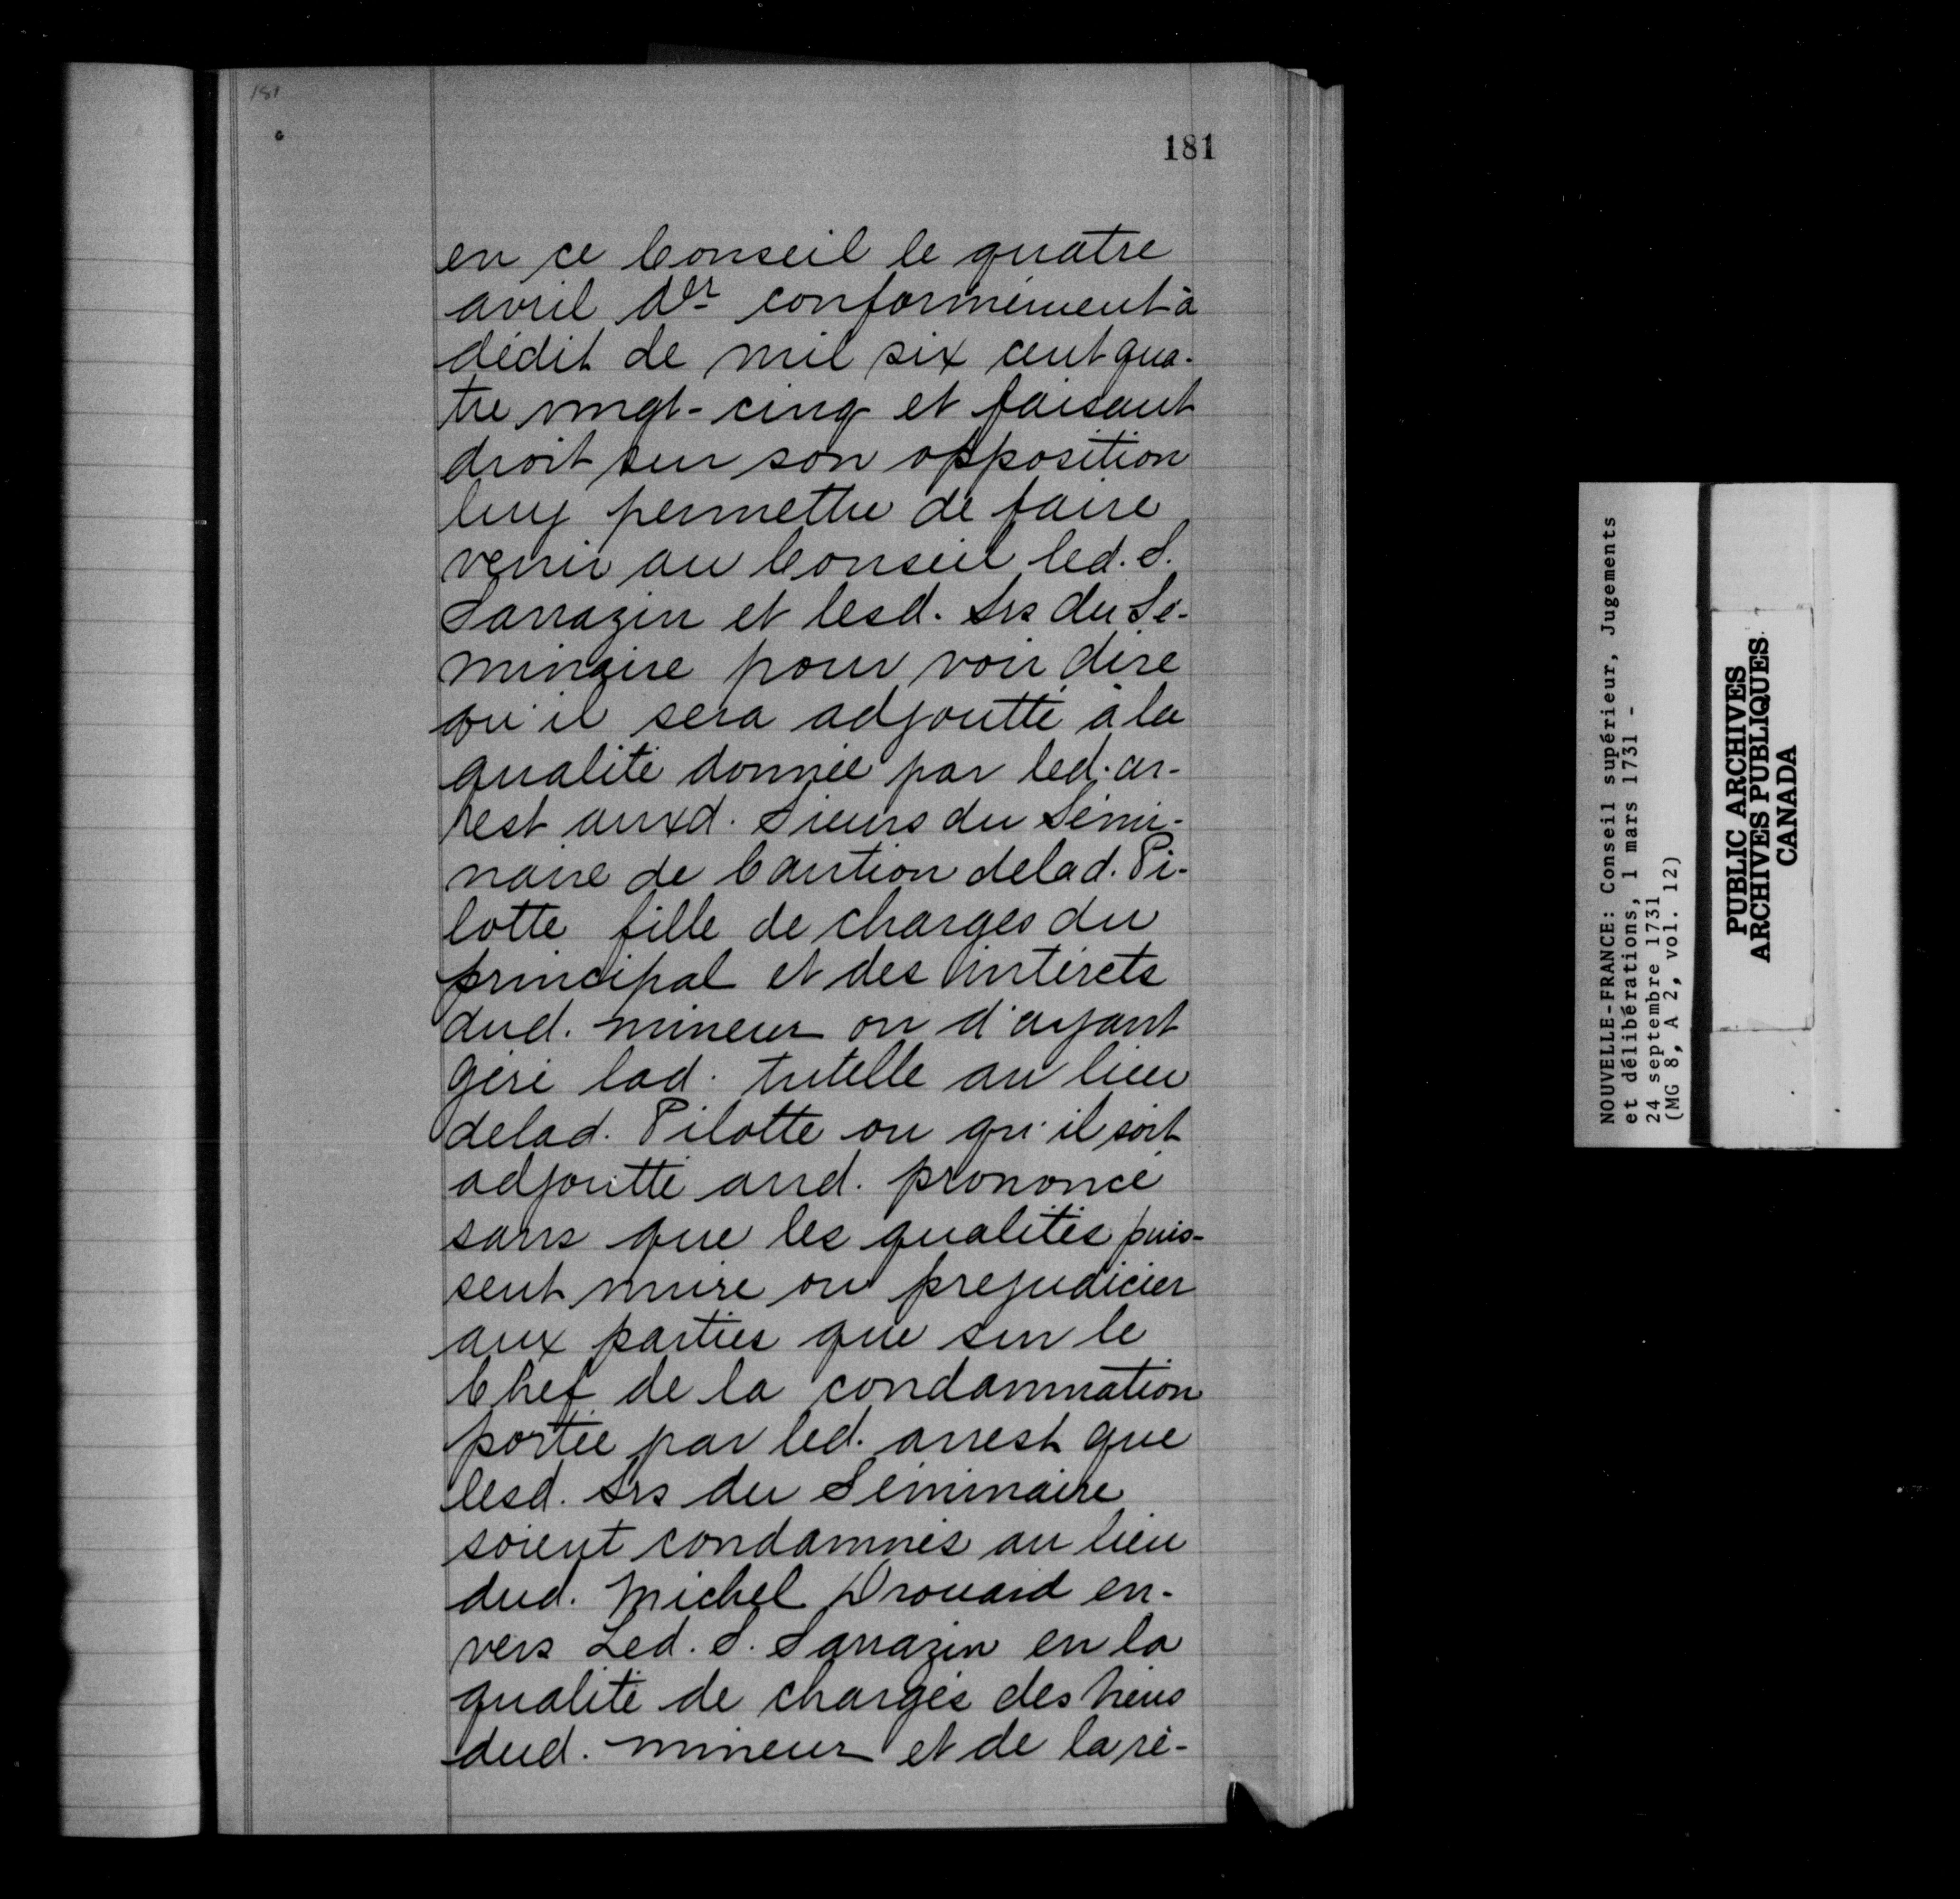 181
181
en ce Conseil le quatre
avril der conformément à
dédit de mil six cent qua-
tre vingt-cinq et faisant
droit sur son opposition
luy permettre de faire
venir au Conseil led. S.
Sarrazin et lesd. Srs du Sé-
minaire pour voir dire
qu'il sera adjoutté à la
qualité donnée par led. ar-
rest auxd. Sieurs du Sémi-
naire de Caution delad. Pi-
lotte fille de charges du
principal et des intérets
dud. mineur ou d'ayant
géré lad. tutelle au lieu
delad. Pilotte ou qu'il soit
adjoutté aud. prononcé
sans que les qualités puis-
sent nuire ou prejudicier
aux parties que sur le
Chef de la condamnation
portée par led. arrest que
lesd. Srs du Séminaire
soient condamnés au lieu
dud. Michel Drouard en-
vers Led. S. Sarrazin en la
qualité de chargés des biens
dud. mineur et de la ré-
NOUVELLE-FRANCE: Conseil supérieur, Jugements
et délibérations, 1 mars 1731 -
24 septembre 1731
(MG 8, A 2, vol. 12)
PUBLIC ARCHIVES
ARCHIVES PUBLIQUES
CANADA